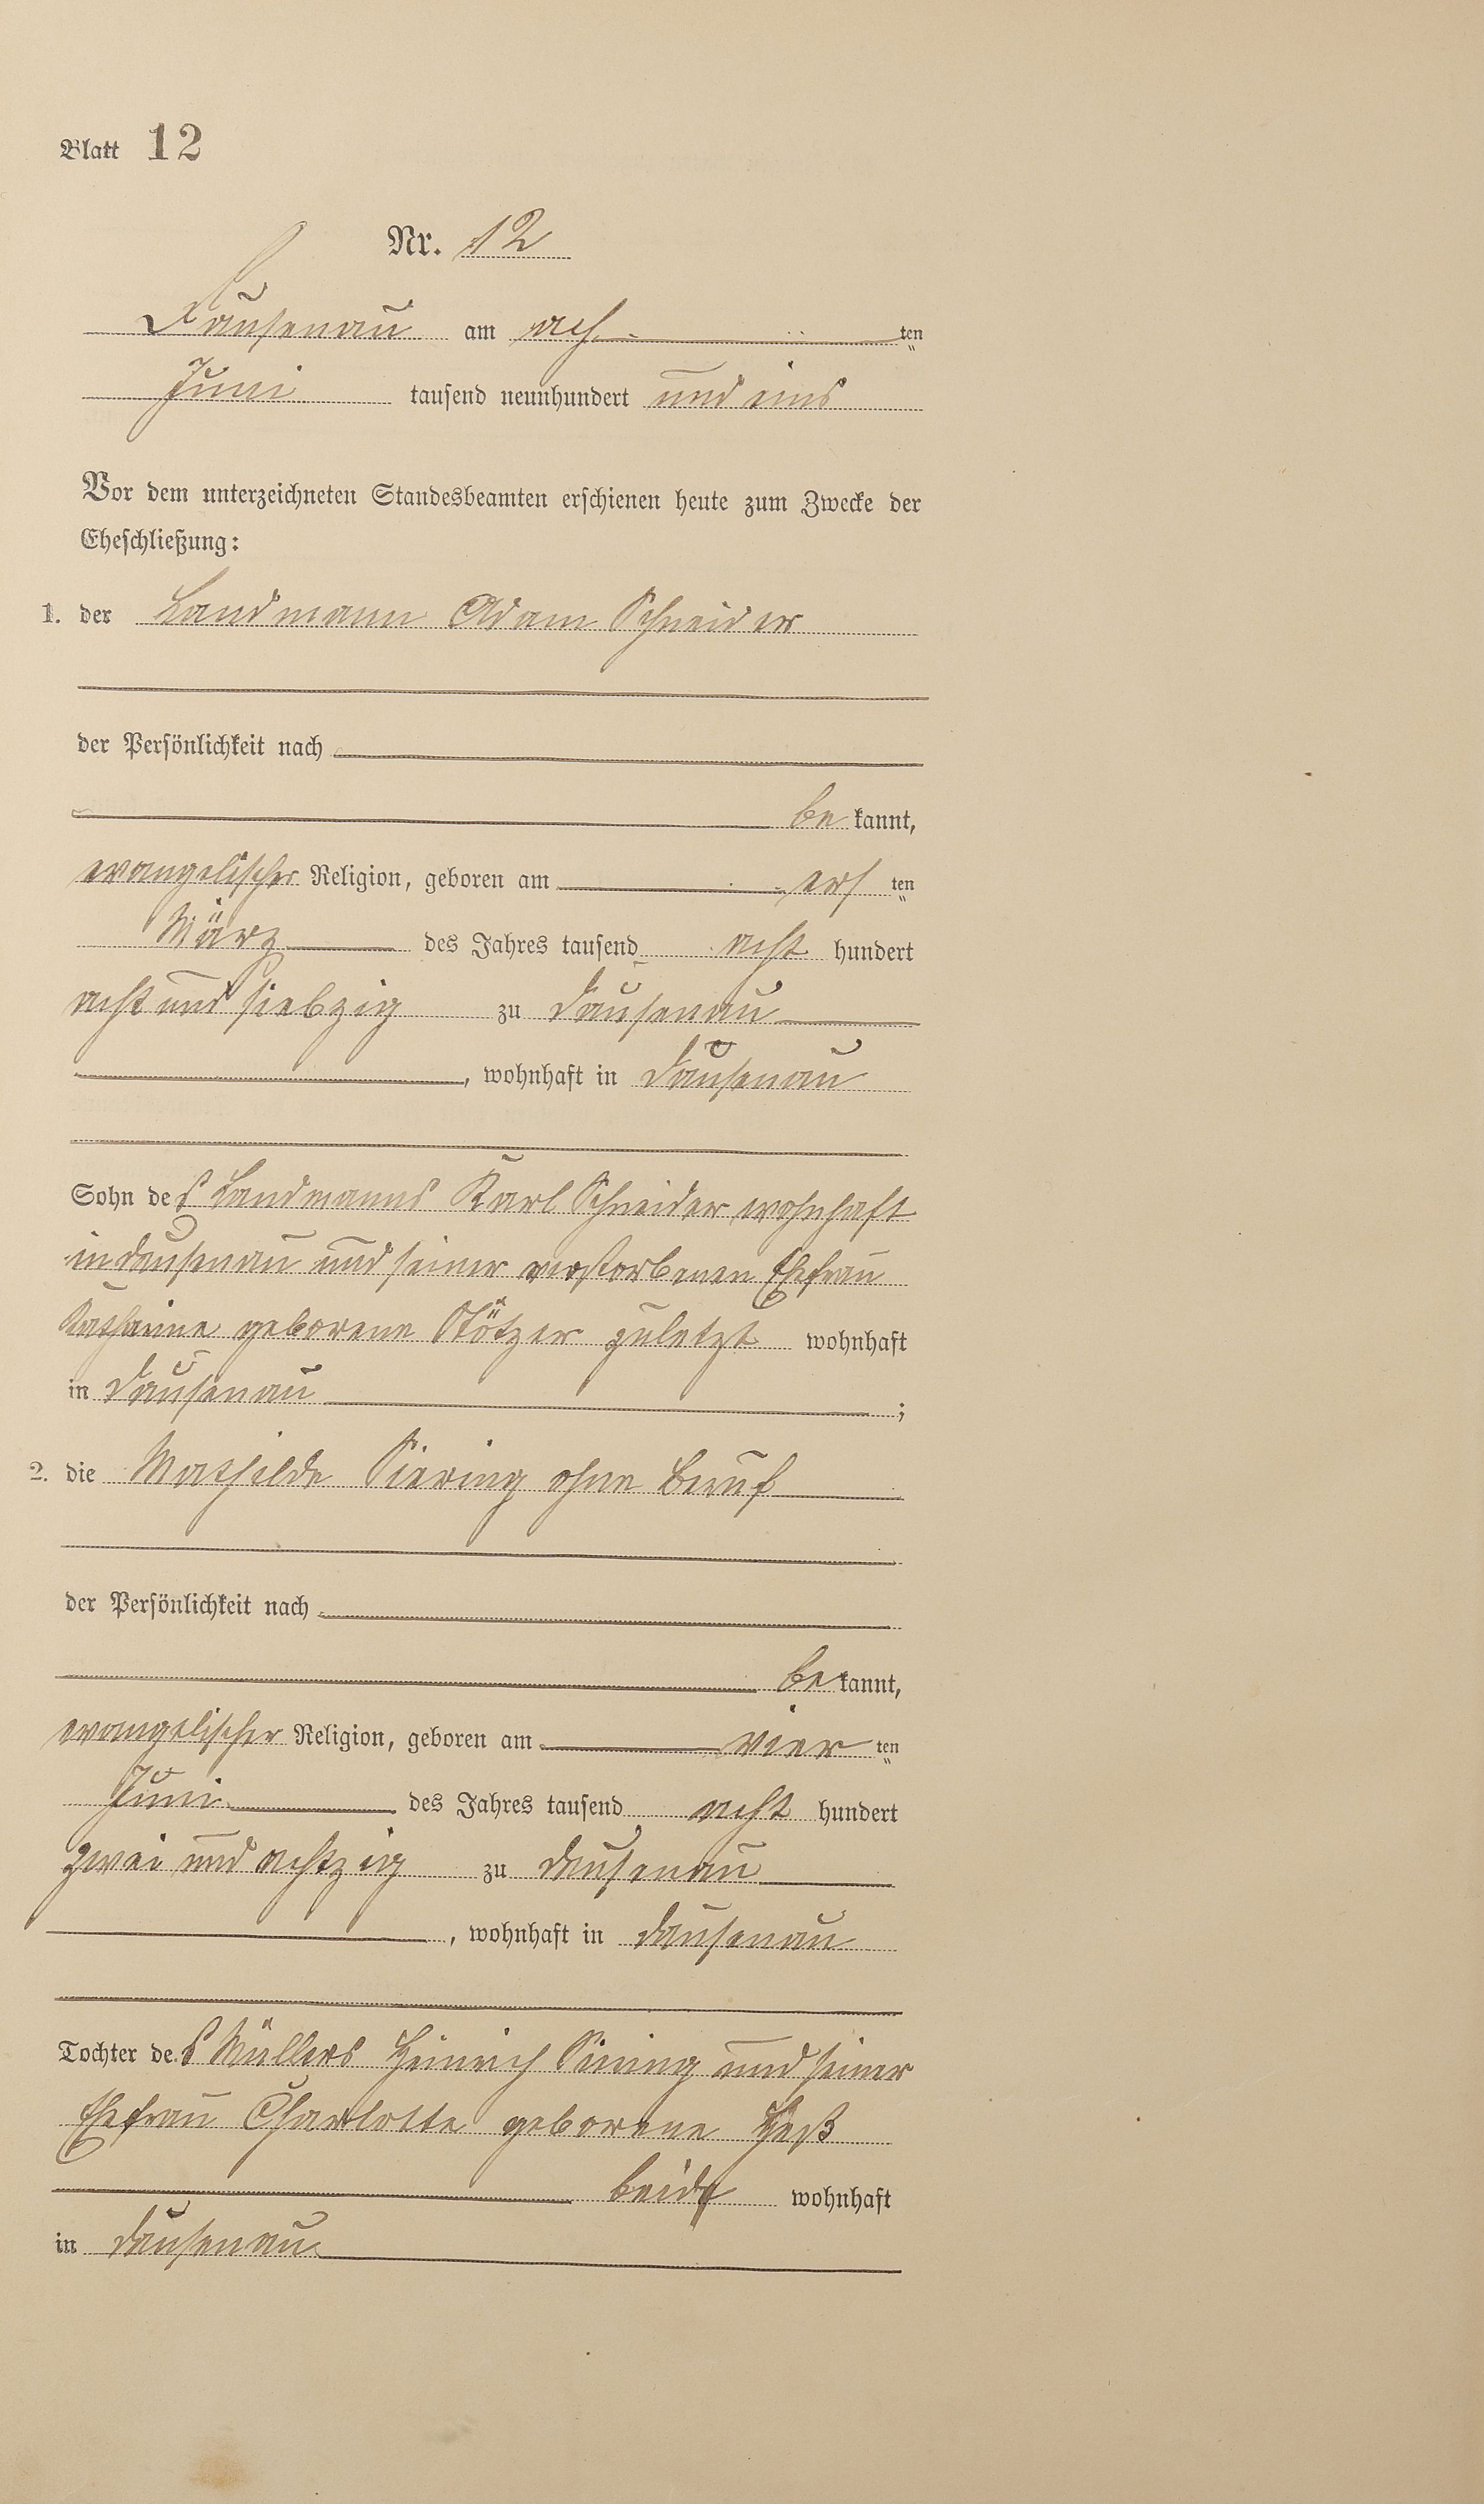 Blatt 12
Nr. 12
Dausenau am ach ten
Juni tausend neunhundert und eins
Vor dem unterzeichneten Standesbeamten erschienen heute zum Zwecke der
Eheschließung:
1. der Landmann Adam Schneider
der Persönlichkeit nach
be kannt,
evangelischer Religion, geboren am ers ten
März des Jahres tausend acht hundert
acht und siebzig zu Dausenau
, wohnhaft in Dausenau
Sohn des Landmanns Karl Schneider wohnhaft
in Dausenau und seiner verstorbenen Ehefrau
Katharine geborene Stötzer zuletzt wohnhaft
in Dausenau ;
2. die Mathilde Siering ohne Beruf
der Persönlichkeit nach
be kannt,
evangelischer Religion, geboren am vier ten
Juni des Jahres tausend acht hundert
zwei und achtzig zu Dausenau
, wohnhaft in Dausenau
Tochter des Müllers Heinrich Siering und seiner
Ehefrau Charlotte geborene Heß
beide wohnhaft
in Dausenau